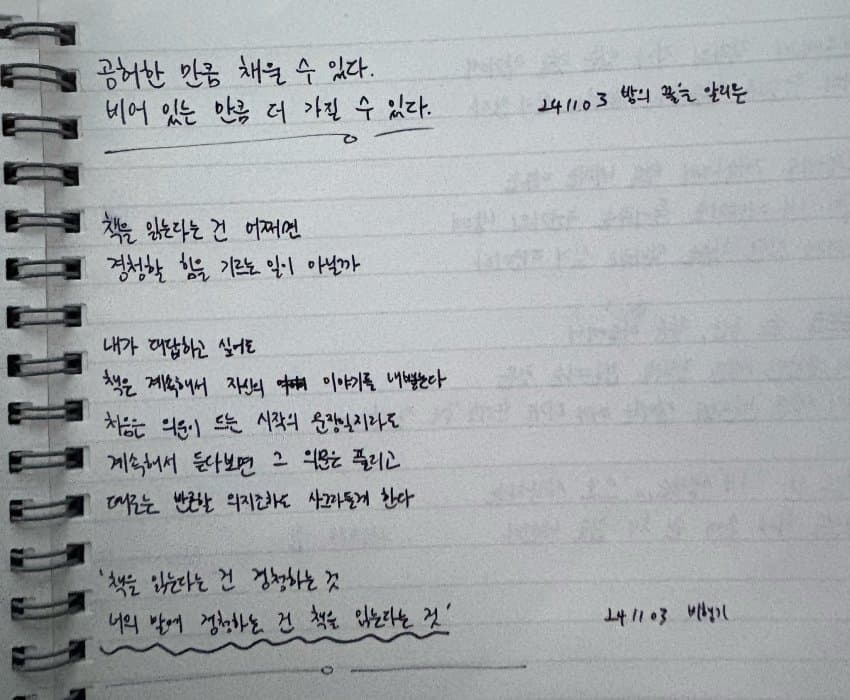 공허한 만큼 채울 수 있다.
비어 있는 만큼 더 가질 수 있다.
241103 밤의 끝을 알리는
책을 읽는다는 건 어쩌면
경청할 힘을 기르는 일이 아닐까
내가 대답하고 싶어도
책은 계속해서 자신의 이야기를 내뱉는다
처음은 의문이 드는 시작의 문장일지라도
계속해서 듣다보면 그 의문은 풀리고
때로는 반론할 의지조차도 사그라들게 한다
'책을 읽는다는 건 경청하는 것
너의 말에 경청하는 건 책을 읽는다는 것'
241103 비행기